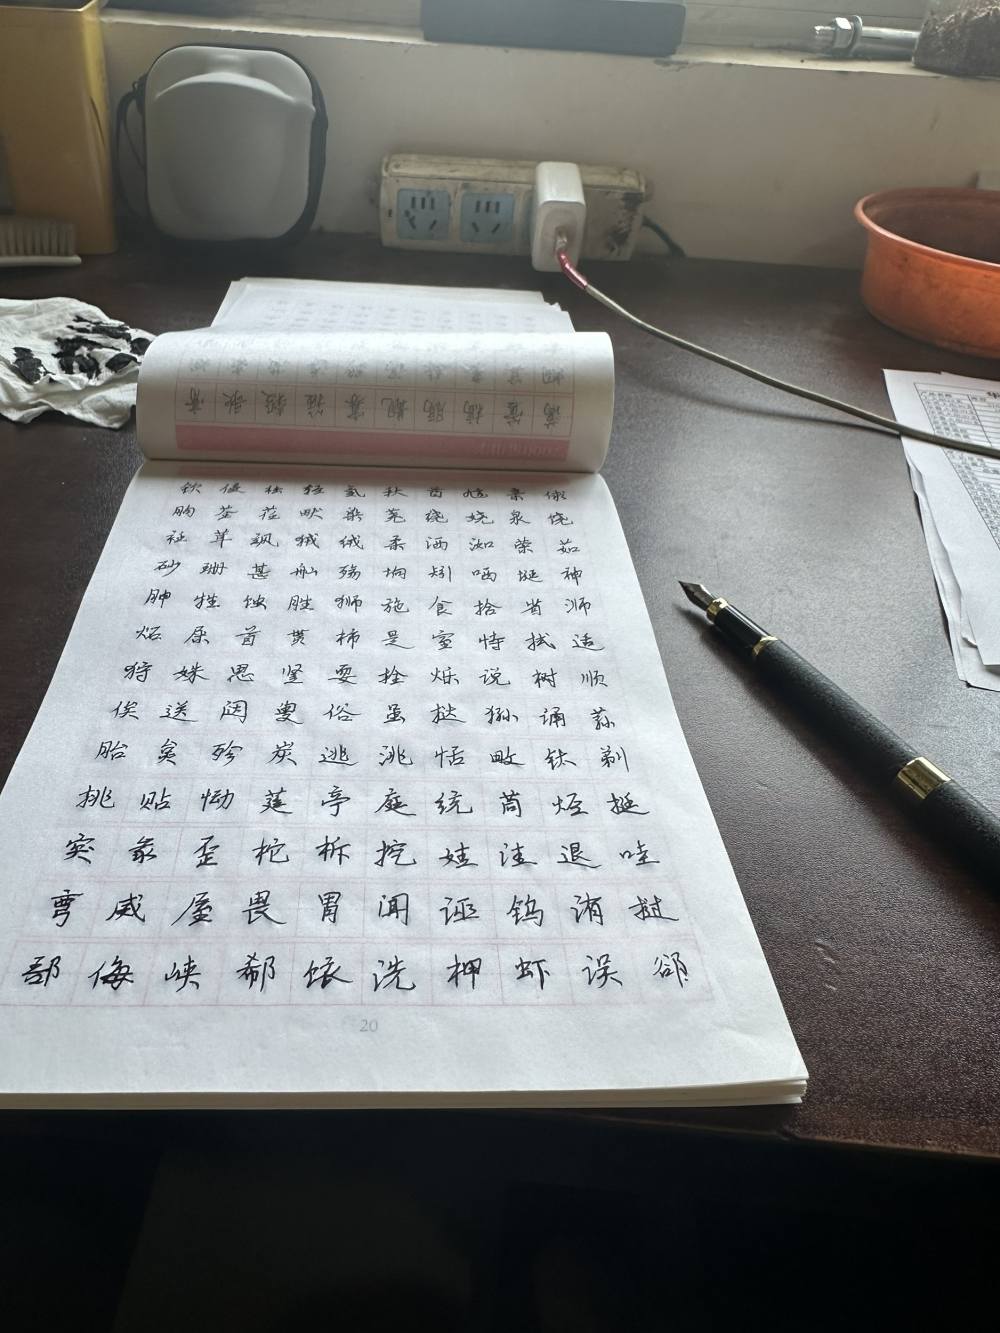 钦 侵 轻 氢 秋 酋 俅
胸 荃 荏 畎 染 荛 绕 娆 泉 饶
衽 茸 飒 狨 绒 柔 洒 洳 荣 茹
砂 珊 甚 舢 殇 垧 矧 哂 埏 神
胂 牲 蚀 胜 狮 施 食 拾 省 浉
炻 屎 首 贳 柿 是 室 恃 拭 适
狩 姝 思 竖 耍 拴 烁 说 树 顺
俟 送 闼 叟 俗 虽 挞 狲 诵 荪
胎 炱 殄 炭 逃 洮 恬 畋 钛 剃
挑 贴 恸 莛 亭 庭 统 茼 烃 挺
突 彖 歪 柁 柝 挖 娃 洼 退 哇
弯 威 屋 畏 胃 闻 诬 钨 洧 挝
郚 侮 峡 郗 饻 洗 柙 虾 误 郤
20